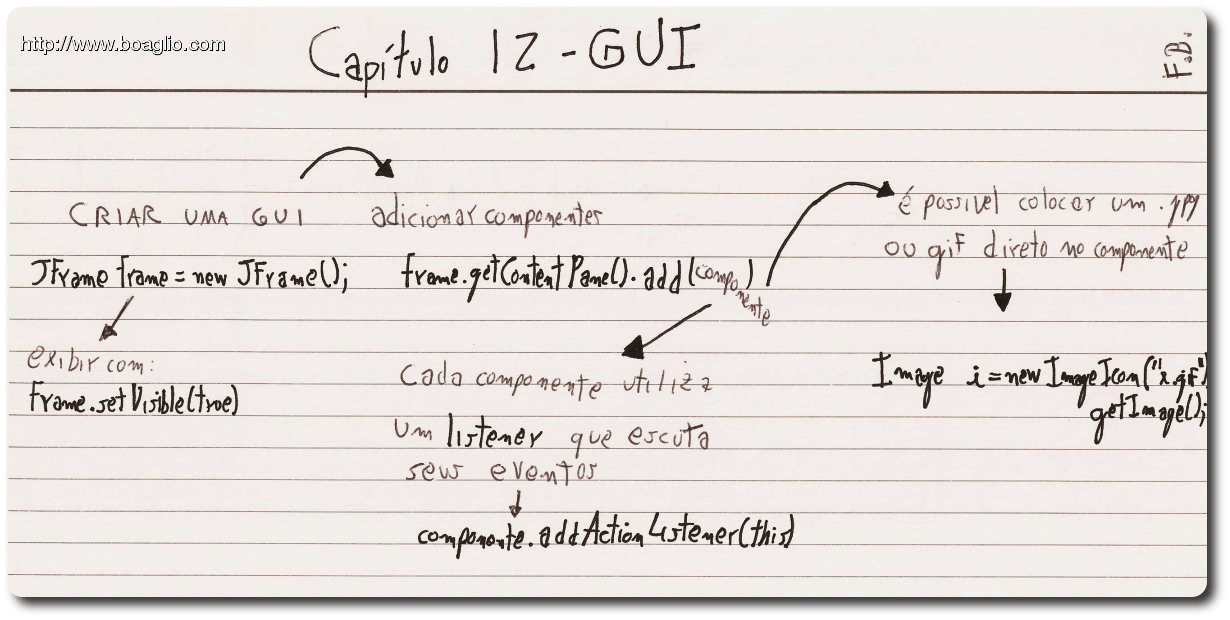 http://www.boaglio.com
Capítulo 12 - GUI
F.B.
CRIAR UMA GUI
JFrame frame = new JFrame();
exibir com:
frame.setVisible(true)
adicionar componentes
frame.getContentPane().add(componente)
Cada componente utiliza
um listener que escuta
seus eventos
componente.addActionListener(this)
é possível colocar um .jpg
ou gif direto no componente
Image i = new ImageIcon("x.gif")
getImage();